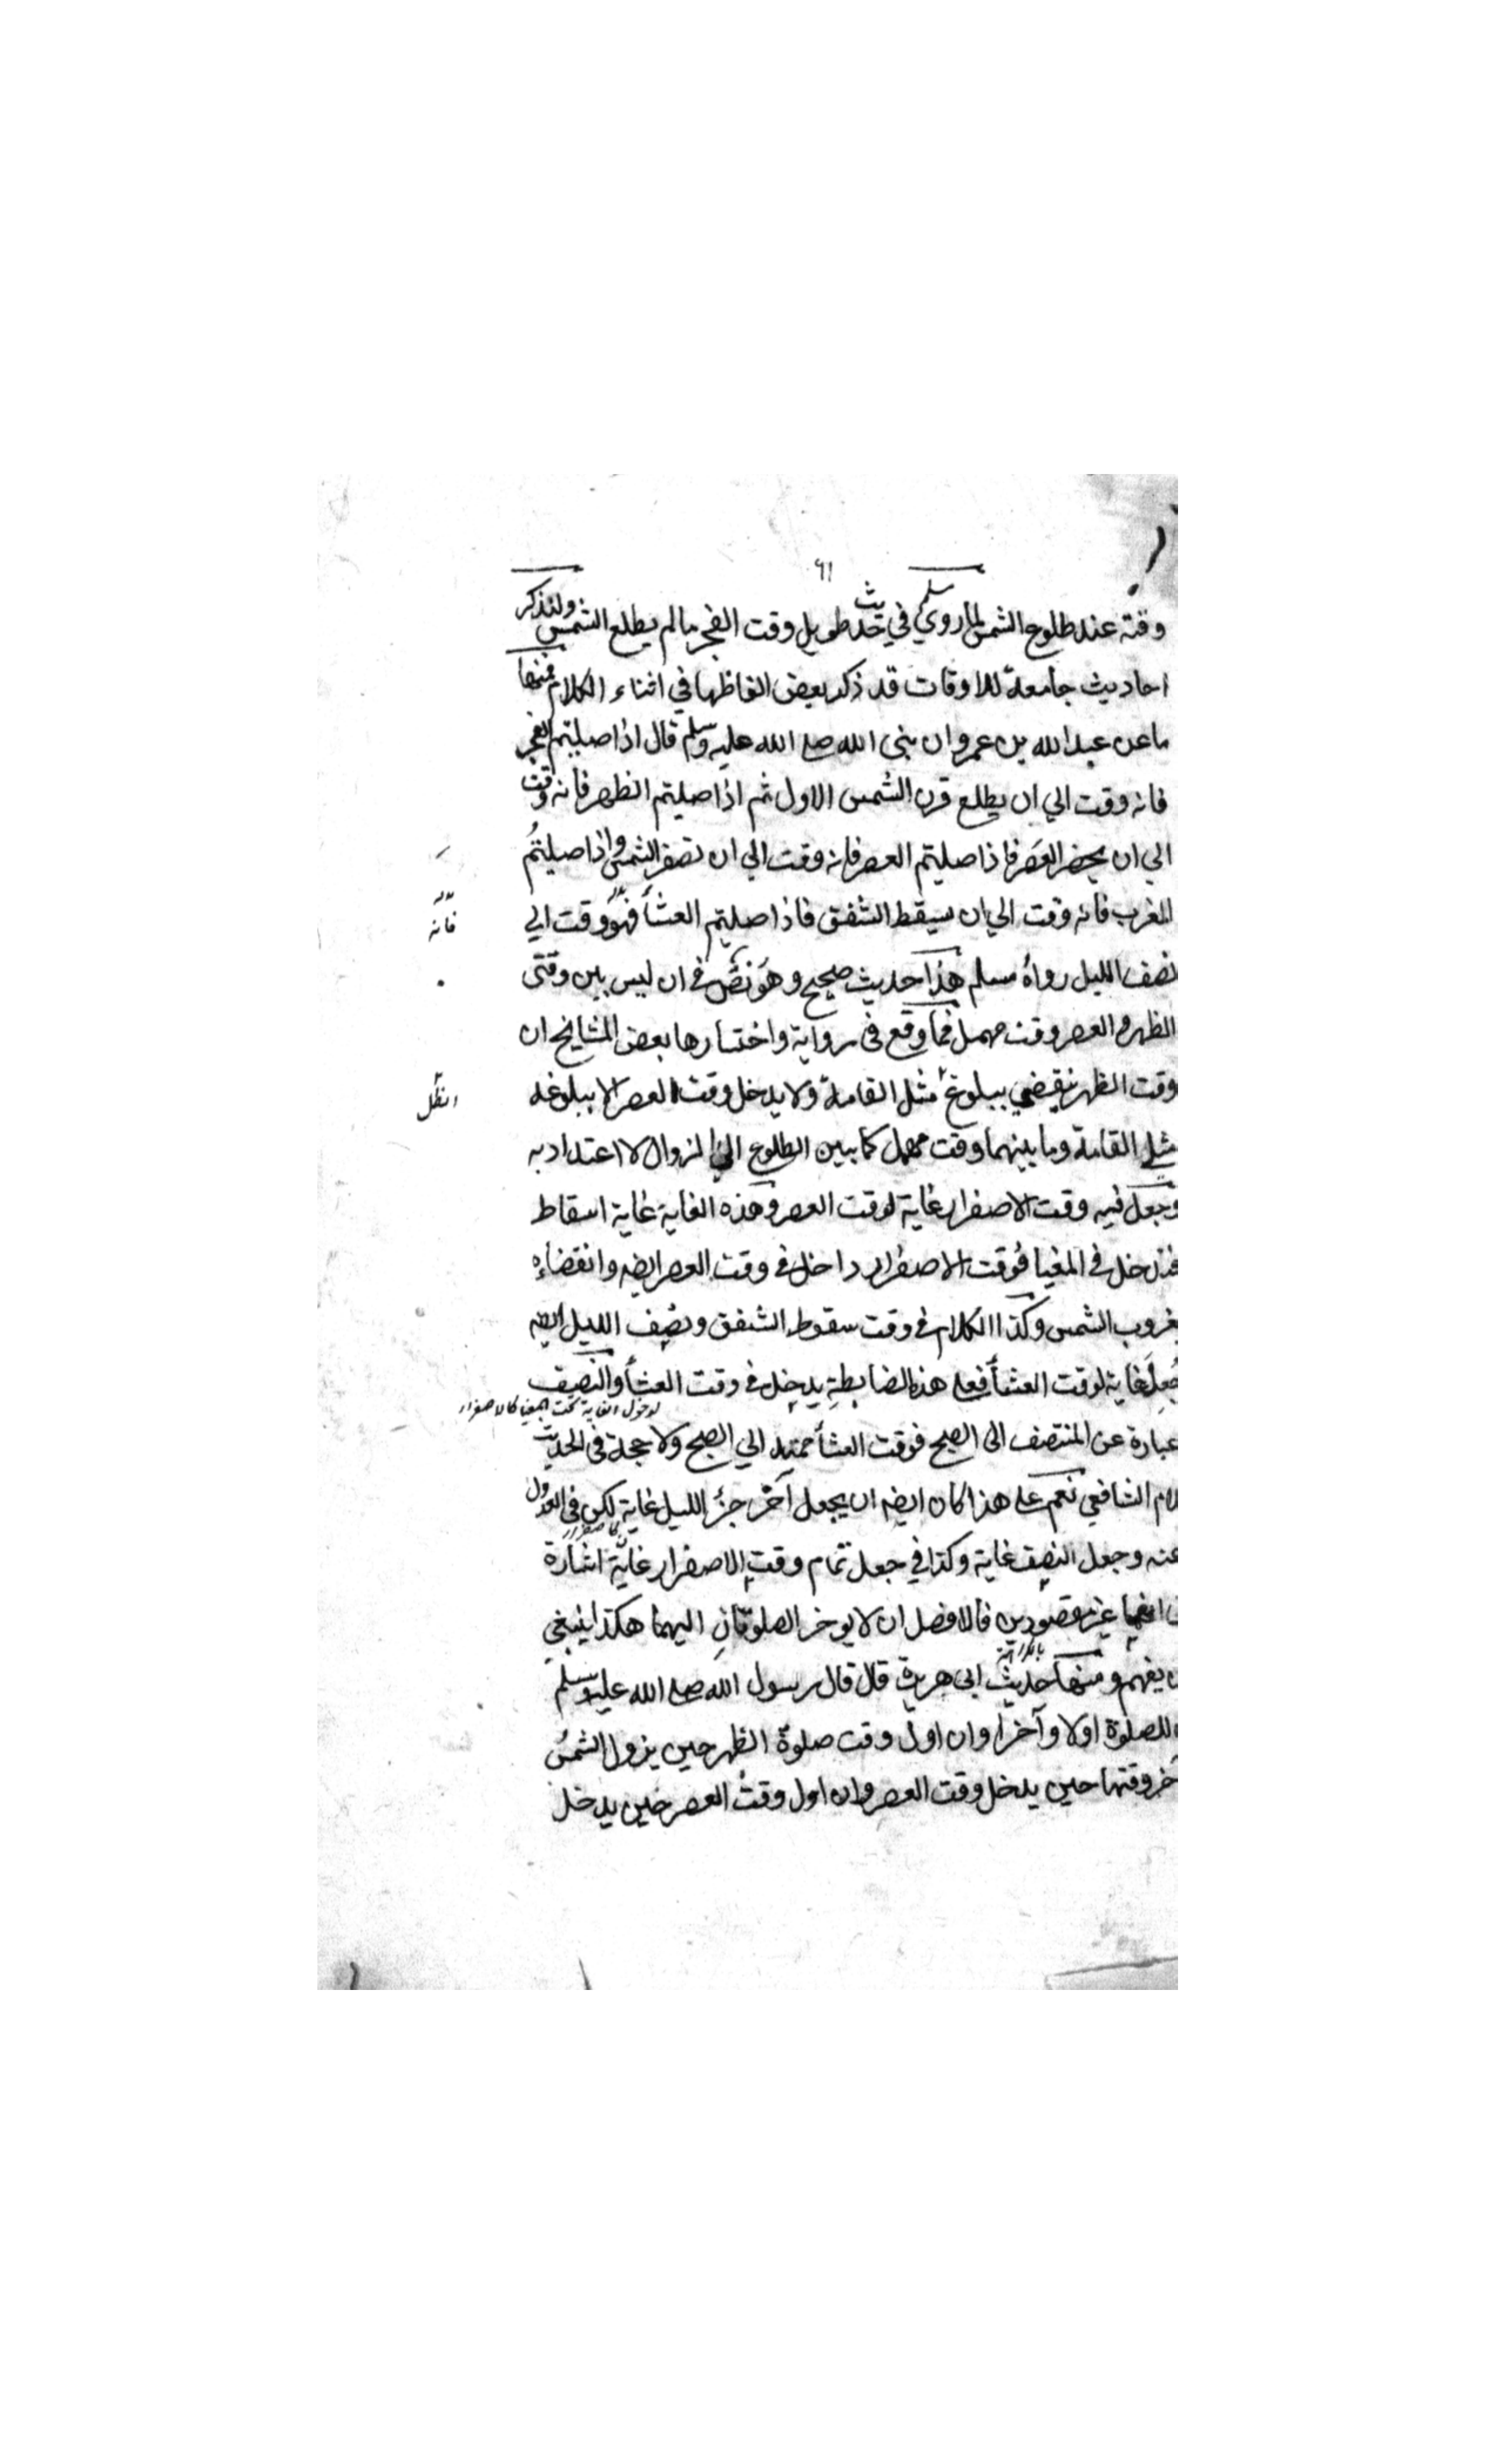 ٦١
وقته عند طلوع الشمس لما روى مسلم في حديث طويل وقت الفجر ما لم يطلع الشمس ولنذكر
احاديث جامعة للاوقات قد ذكر بعض الفاظها في اثناء الكلام فمنها
ما عن عبد الله بن عمرو ان نبى الله صلع الله عليه وسلم قال اذا صليتم الفجر
فانه وقت الي ان يطلع قرن الشمس الاول ثم اذا صليتم الظهر فانه وقت
الي ان يحضر العصر فاذا صليتم العصر فانه وقت الي ان تصفر الشمس واذا صليتم
المغرب فانه وقت الي ان يسقط الشفق فاذا صليتم العشأ فهو وقت الي
فانه
نصف الليل رواه مسلم هذا حديث صحيح وهو نص في ان ليس بين وقتى
الظهر والعصر وقت مهمل فما وقع في رواية واختارها بعض المشايخ ان
وقت الظهر ينقضي ببلوغ مثل القامة ولا يدخل وقت العصر الا ببلوغه
الظل
مثلي القامة وما بينهما وقت مهمل كما بين الطلوع الي الزوال لا اعتداد به
وجعل فيه وقت الاصفرار غاية لوقت العصر وهذه الغاية غاية اسقاط
فتدخل في المغيا فوقت الاصفرار داخل في وقت العصر ايضه وانقضاءه
بغروب الشمس وكذا الكلام في وقت سقوط الشفق ونصف الليل ايضه
جعل غاية لوقت العشأ فعلى هذه الضابطة يدخل في وقت العشأ والنصف
لدخول الغاية تحت المغيا كالاصفرار
عبارة عن المنتصف الى الصبح فوقت العشأ ممتد الي الصبح ولا حجة في الحديث
للامام الشافعي نعم على هذا كان ايضه ان يجعل آخر جزء الليل غاية لكن في العدول
عنه وجعل النصف غاية وكذا في جعل تمام وقت الاصفرار غاية اشارة
انهما غير مقصودين فالافضل ان لا يوخر الصلوتان اليهما هكذا ينبغي
ان يفهم ومنها حديث ابى هريرة قال قال رسول الله صلع الله عليه وسلم
للصلوة اولا وآخرا وان اول وقت صلوة الظهر حين يزول الشمس
آخر وقتها حين يدخل وقت العصر وان اول وقت العصر حين يدخل